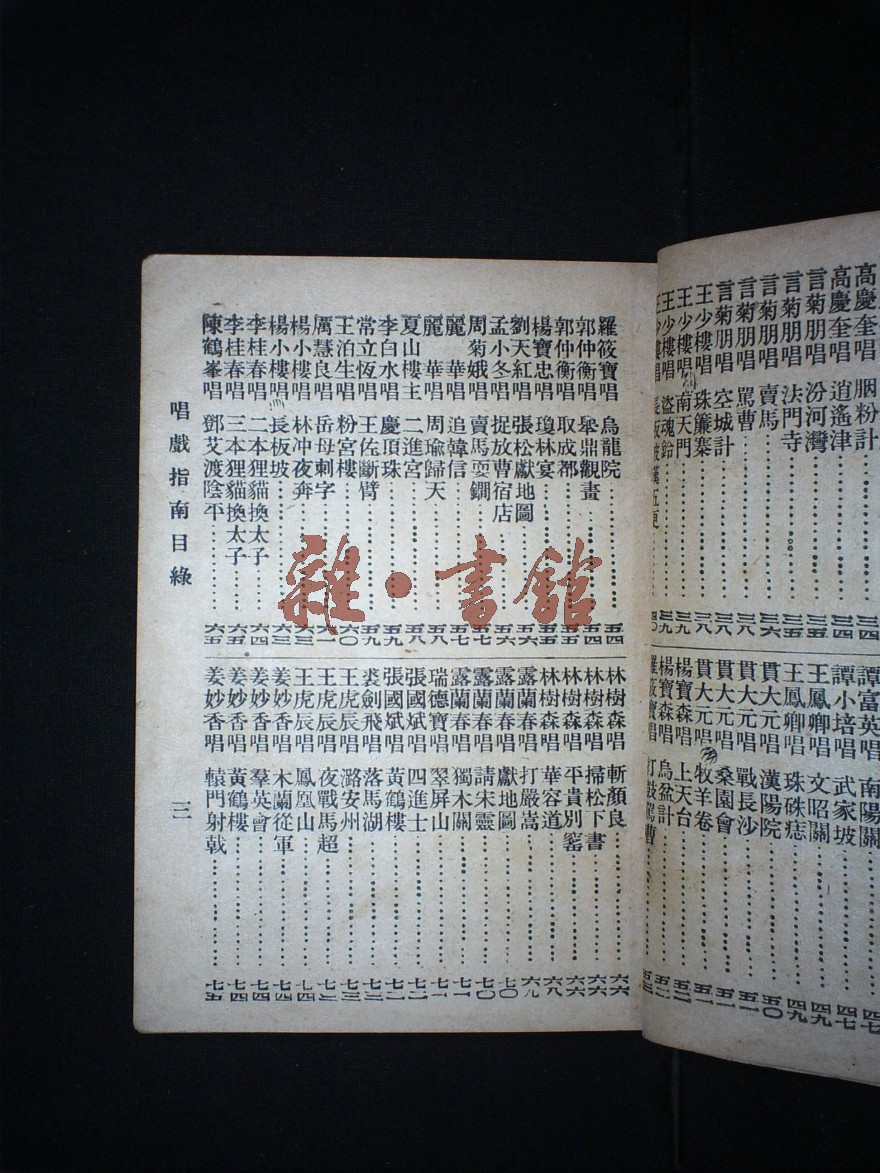 高慶奎唱 胭粉計 三四
高慶奎唱 逍遙津 三四
言菊朋唱 汾河灣 三五
言菊朋唱 法門寺 三五
言菊朋唱 賣馬 三六
言菊朋唱 罵曹 三八
言菊朋唱 空城計 三八
王少樓唱 珠簾寨 三八
王少樓唱 南天門 三九
王少樓唱 盜魂鈴 三九
王少樓唱 長板坡漢五更 四〇
譚富英唱 南陽關 四七
譚小培唱 武家坡 四七
王鳳卿唱 文昭關 四九
王鳳卿唱 珠硃痣 四九
貫大元唱 漢陽院 五〇
貫大元唱 戰長沙 五一
貫大元唱 桑園會 五一
貫大元唱 牧羊卷 五一
楊寶森唱 上天台 五二
楊寶森唱 烏盆計 五二
羅筱寶唱 打鼓罵曹 五三
羅筱寶唱 烏龍院 五四
郭仲衡唱 舉鼎觀畫 五四
郭仲衡唱 取成都 五五
楊寶忠唱 瓊林宴 五五
劉天紅唱 張松獻地圖 五五
孟小冬唱 捉放曹宿店 五六
周菊娥唱 賣馬耍鐧 五七
麗華唱 追韓信 五七
麗華唱 周瑜歸天 五八
夏山樓主 二進宮 五八
李白水唱 慶頂珠 五九
常立恆唱 王佐斷臂 五九
王泊生唱 粉宮樓 六〇
厲慧良唱 岳母刺字 六一
楊小樓唱 林冲夜奔 六三
楊小樓唱 長板坡 六三
李桂春唱 二本狸貓換太子 六四
李桂春唱 三本狸貓換太子 六五
陳鶴峯唱 鄧艾渡陰平 六五
林樹森唱 斬顏良 六六
林樹森唱 掃松下書 六六
林樹森唱 平貴別窰 六六
林樹森唱 華容道 六八
露蘭春唱 打嚴嵩 六九
露蘭春唱 獻地圖 七〇
露蘭春唱 請宋靈 七〇
露蘭春唱 獨木關 七一
瑞德寶唱 翠屏山 七一
張國斌唱 四進士 七二
張國斌唱 黃鶴樓 七二
裘劍飛唱 落馬湖 七三
王虎辰唱 潞安州 七三
王虎辰唱 夜戰馬超 七三
王虎辰唱 鳳凰山 七四
姜妙香唱 木蘭從軍 七四
姜妙香唱 羣英會 七四
姜妙香唱 黃鶴樓 七四
姜妙香唱 轅門射戟 七五
唱戲指南目錄 三
雜·書館